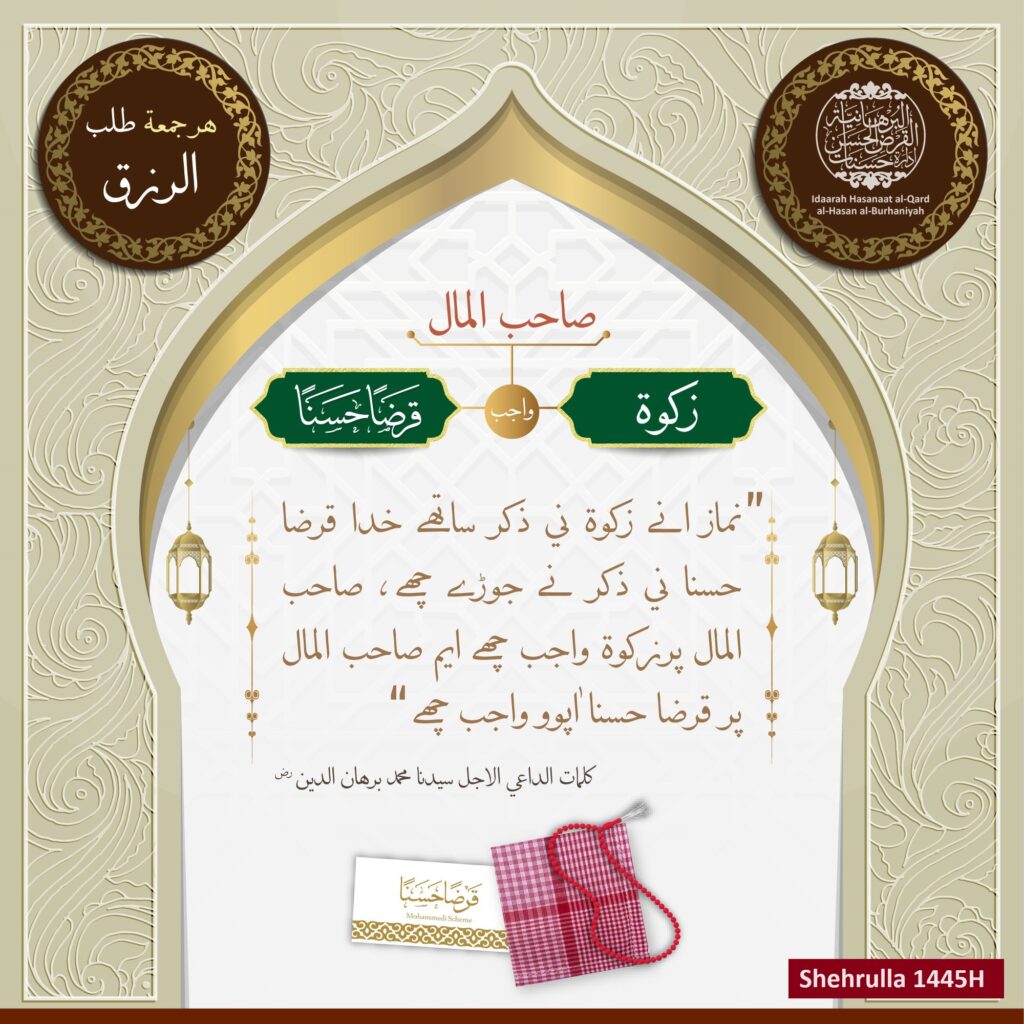 هر جمعة طلب
الرزق
البرهانية
القرض الحسن
ادارة حسنات
Idaarah Hasanaat al-Qard
al-Hasan al-Burhaniyah
صاحب المال
زكوة
واجب
قرضًا حسنًا
"نماز انے زكوة ني ذكر ساتھے خدا قرضا
حسنا ني ذكر نے جوڑے چھے، صاحب
المال پر زكوة واجب چھے ايم صاحب المال
پر قرضا حسنا اٰپوو واجب چھے"
كلمات الداعي الاجل سيدنا محمد برهان الدين رض
قَرْضًا حَسَنًا
Mohammedi Scheme
Shehrulla 1445H